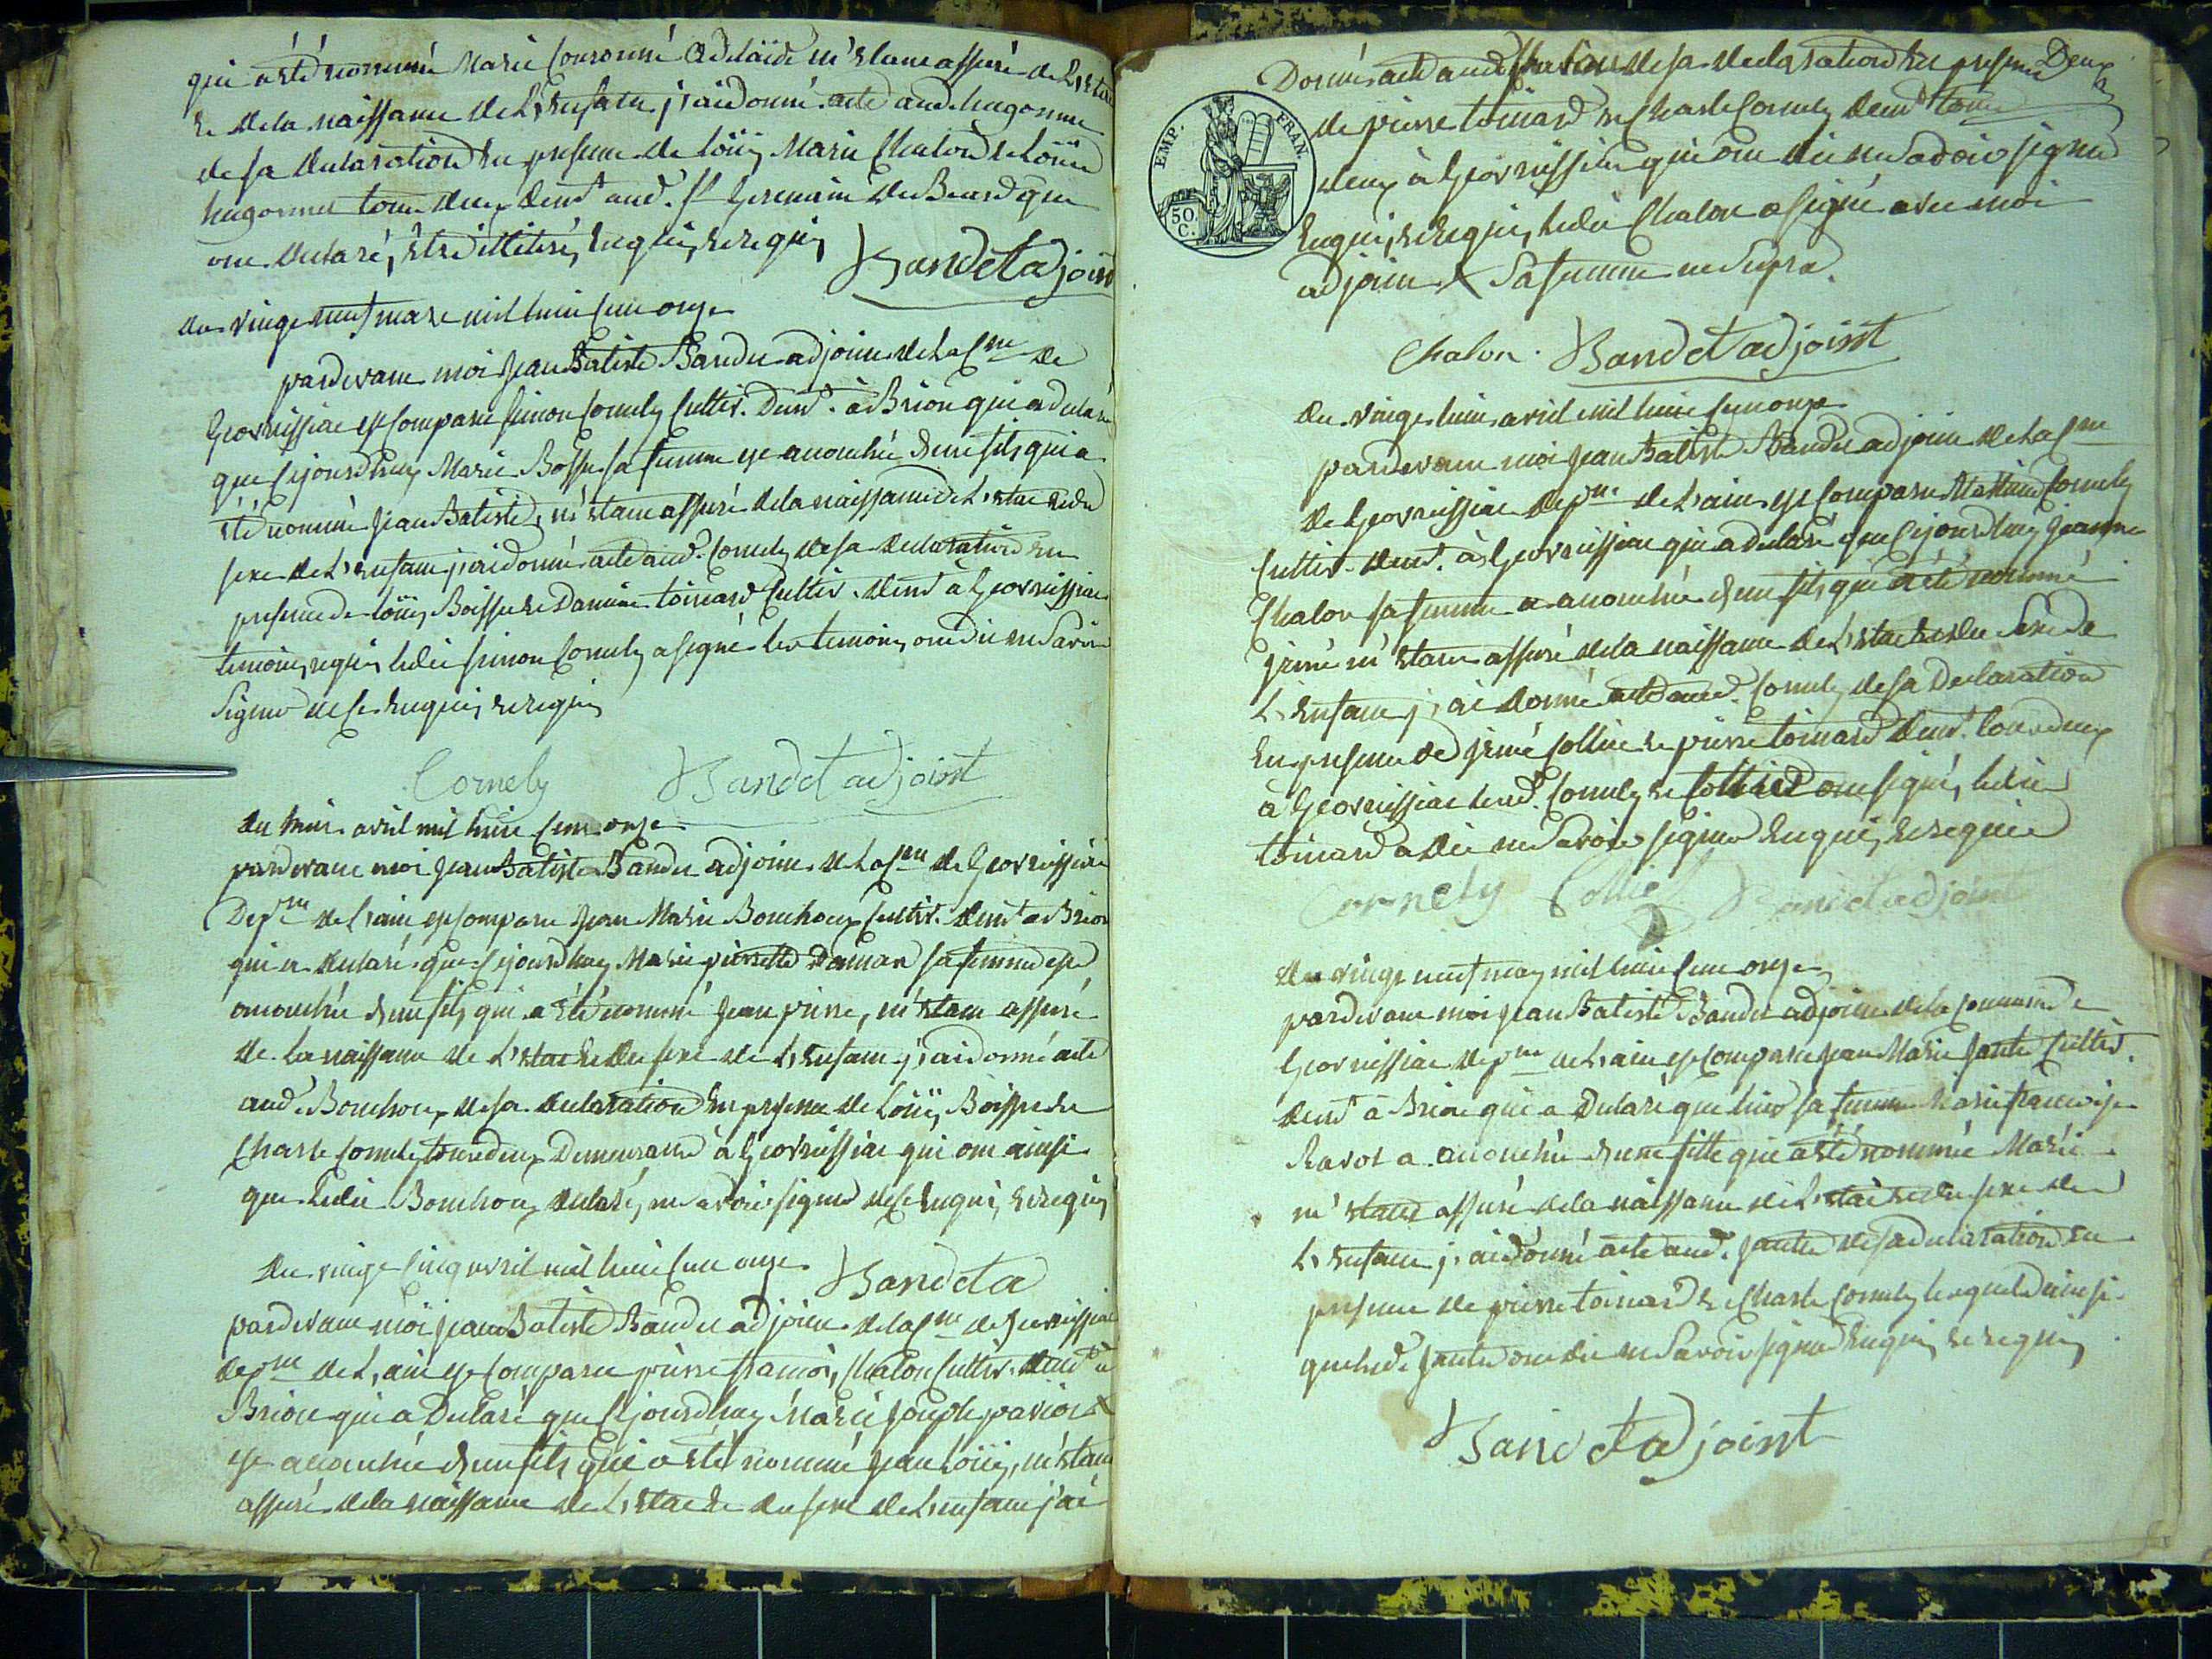 qui a été nommé Marie Couronné Adélaïde m'étant assuré de L'état
& de la naissance de L'enfant j'ai donné acte aud. hugonnet
de sa déclaration en présence de Loüis Marie Chalon & Loüis
hugonnet tous deux demt aud. St Germain de Beard qui
ont declaré, être illitéré, enquis, & requis,
Bandet adjoint
du vingt neuf mars mil huit cent onze
pardevant moi Jean Batiste Bandet adjoint de la Cne de
Geovrissiac est Comparu Simon Cornely Cultiv. Demt. à Brion qui a declaré
que Cejourdhuy Marie Bossu sa femme est accouchée d'un fils qui a
été nommé Jean Batiste, m'étant assuré de la naissance de L'état & du
sexe de L'enfant j'ai donné acte aud. Cornely de sa declaration en
présence de Loüis Boissu & toinard Cultiv. demt à Geovrissiac
temoins, requis ledit Simon Cornely a signé les temoins ont dit ne Savoir
Signer de ce enquis, & requis
Cornely Bandet adjoint
du huit avril mil huit cent onze
pardevant moi Jean Batiste Bandet adjoint de la Cne de Geovrissiac
Depne de L'ain est Comparu Jean Marie Bouchoux Cultiv. demt a Brion
qui a declaré que Cejourdhuy Marie pierrette sa femme est
accouchée d'un fils, qui a été nommé Jean pierre, m'étant assuré
de la naissance de L'état & du sexe de L'enfant j'ai donné acte
aud. Bouchoux de sa declaration en présence de Loüis, Boissu &
Charle Cornely tous deux Demeurant à Geovrissiac qui ont ainsi
que Ledit Bouchoux declaré, ne avoir signer de ce enquis, & requis,
Du vingt cinq avril mil huit cent onze
Bandet a
pardevant moi Jean Batiste Bandet adjoint de la Cne de Geovrissiac
depne de L'ain est Comparu pierre francois, Chalon Cultiv. demt à
Brion qui a Declaré que Cejourdhuy Marie Joseph X
est accouchée d'un fils qui a été nommé Jean Loüis, m'étant
assuré de la naissance de L'état & du sexe de L'enfant j'ai
Deux
EMP. FRAN.
50 C.
Donné acte aud. Chalon de sa declaration en présence
de pierre toinard & Charle Cornely demt tous
deux à Geovrissiac qui ont dit ne Savoir signer
Enquis, & requis, ledit Chalon a signé avec moi
adjoint X Sa femme ut Supra.
Chalon. Bandet adjoint
du vingt huit avril mil huit cent onze
pardevant moi Jean Batiste Bandet adjoint de la Cne
de Geovrissiac depne de L'ain est Comparu Cornely
Cultiv. demt. à Geovrissiac qui a declaré que Cejourdhuy Jeanne
Chalon sa femme a accouchée d'un fils, qui a été nommé
m'étant assuré de la naissance de L'état & du Sexe de
L'enfant j'ai donné acte aud. Cornely de sa Declaration
En présence de Collier & pierre toinard demt. tous deux
à Geovrissiac led. Cornely & Collier ont signé, ledit
toinard a dit ne Savoir signer Enquis, & requis
Cornely Collier Bandet adjoint
du vingt neuf may mil huit cent onze
pardevant moi Jean Batiste Bandet adjoint de la Commune de
Geovrissiac depne de L'ain est Comparu Jean Marie Cultiv.
demt à Brion qui a Declaré que hier sa femme Marie francoise
Ravot a accouchée d'une fille qui a été nommée Marie
m'étant assuré de la naissance de L'état & du sexe de
L'enfant j'ai donné acte aud. de sa declaration en
présence de pierre toinard & Charle Cornely lesquels ainsi
que led. ont dit ne Savoir signer Enquis, & requis,
Bandet adjoint